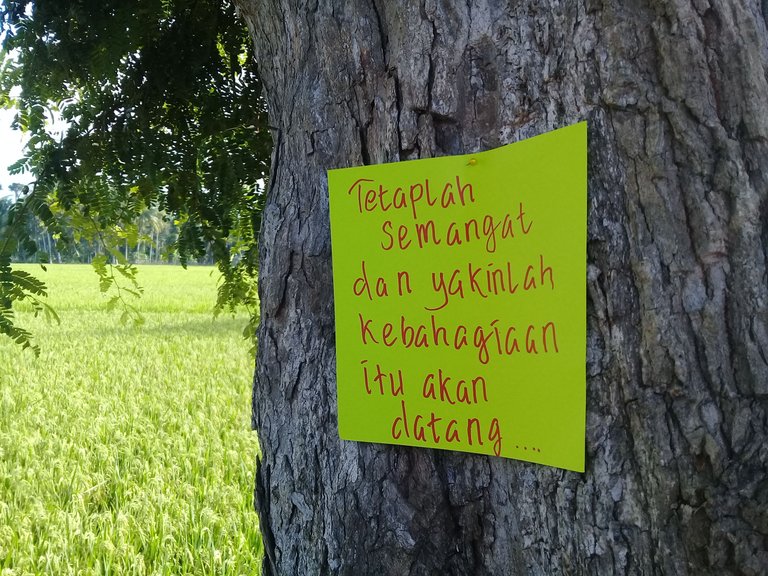 Tetaplah
semangat
dan yakinlah
kebahagiaan
itu akan
datang....